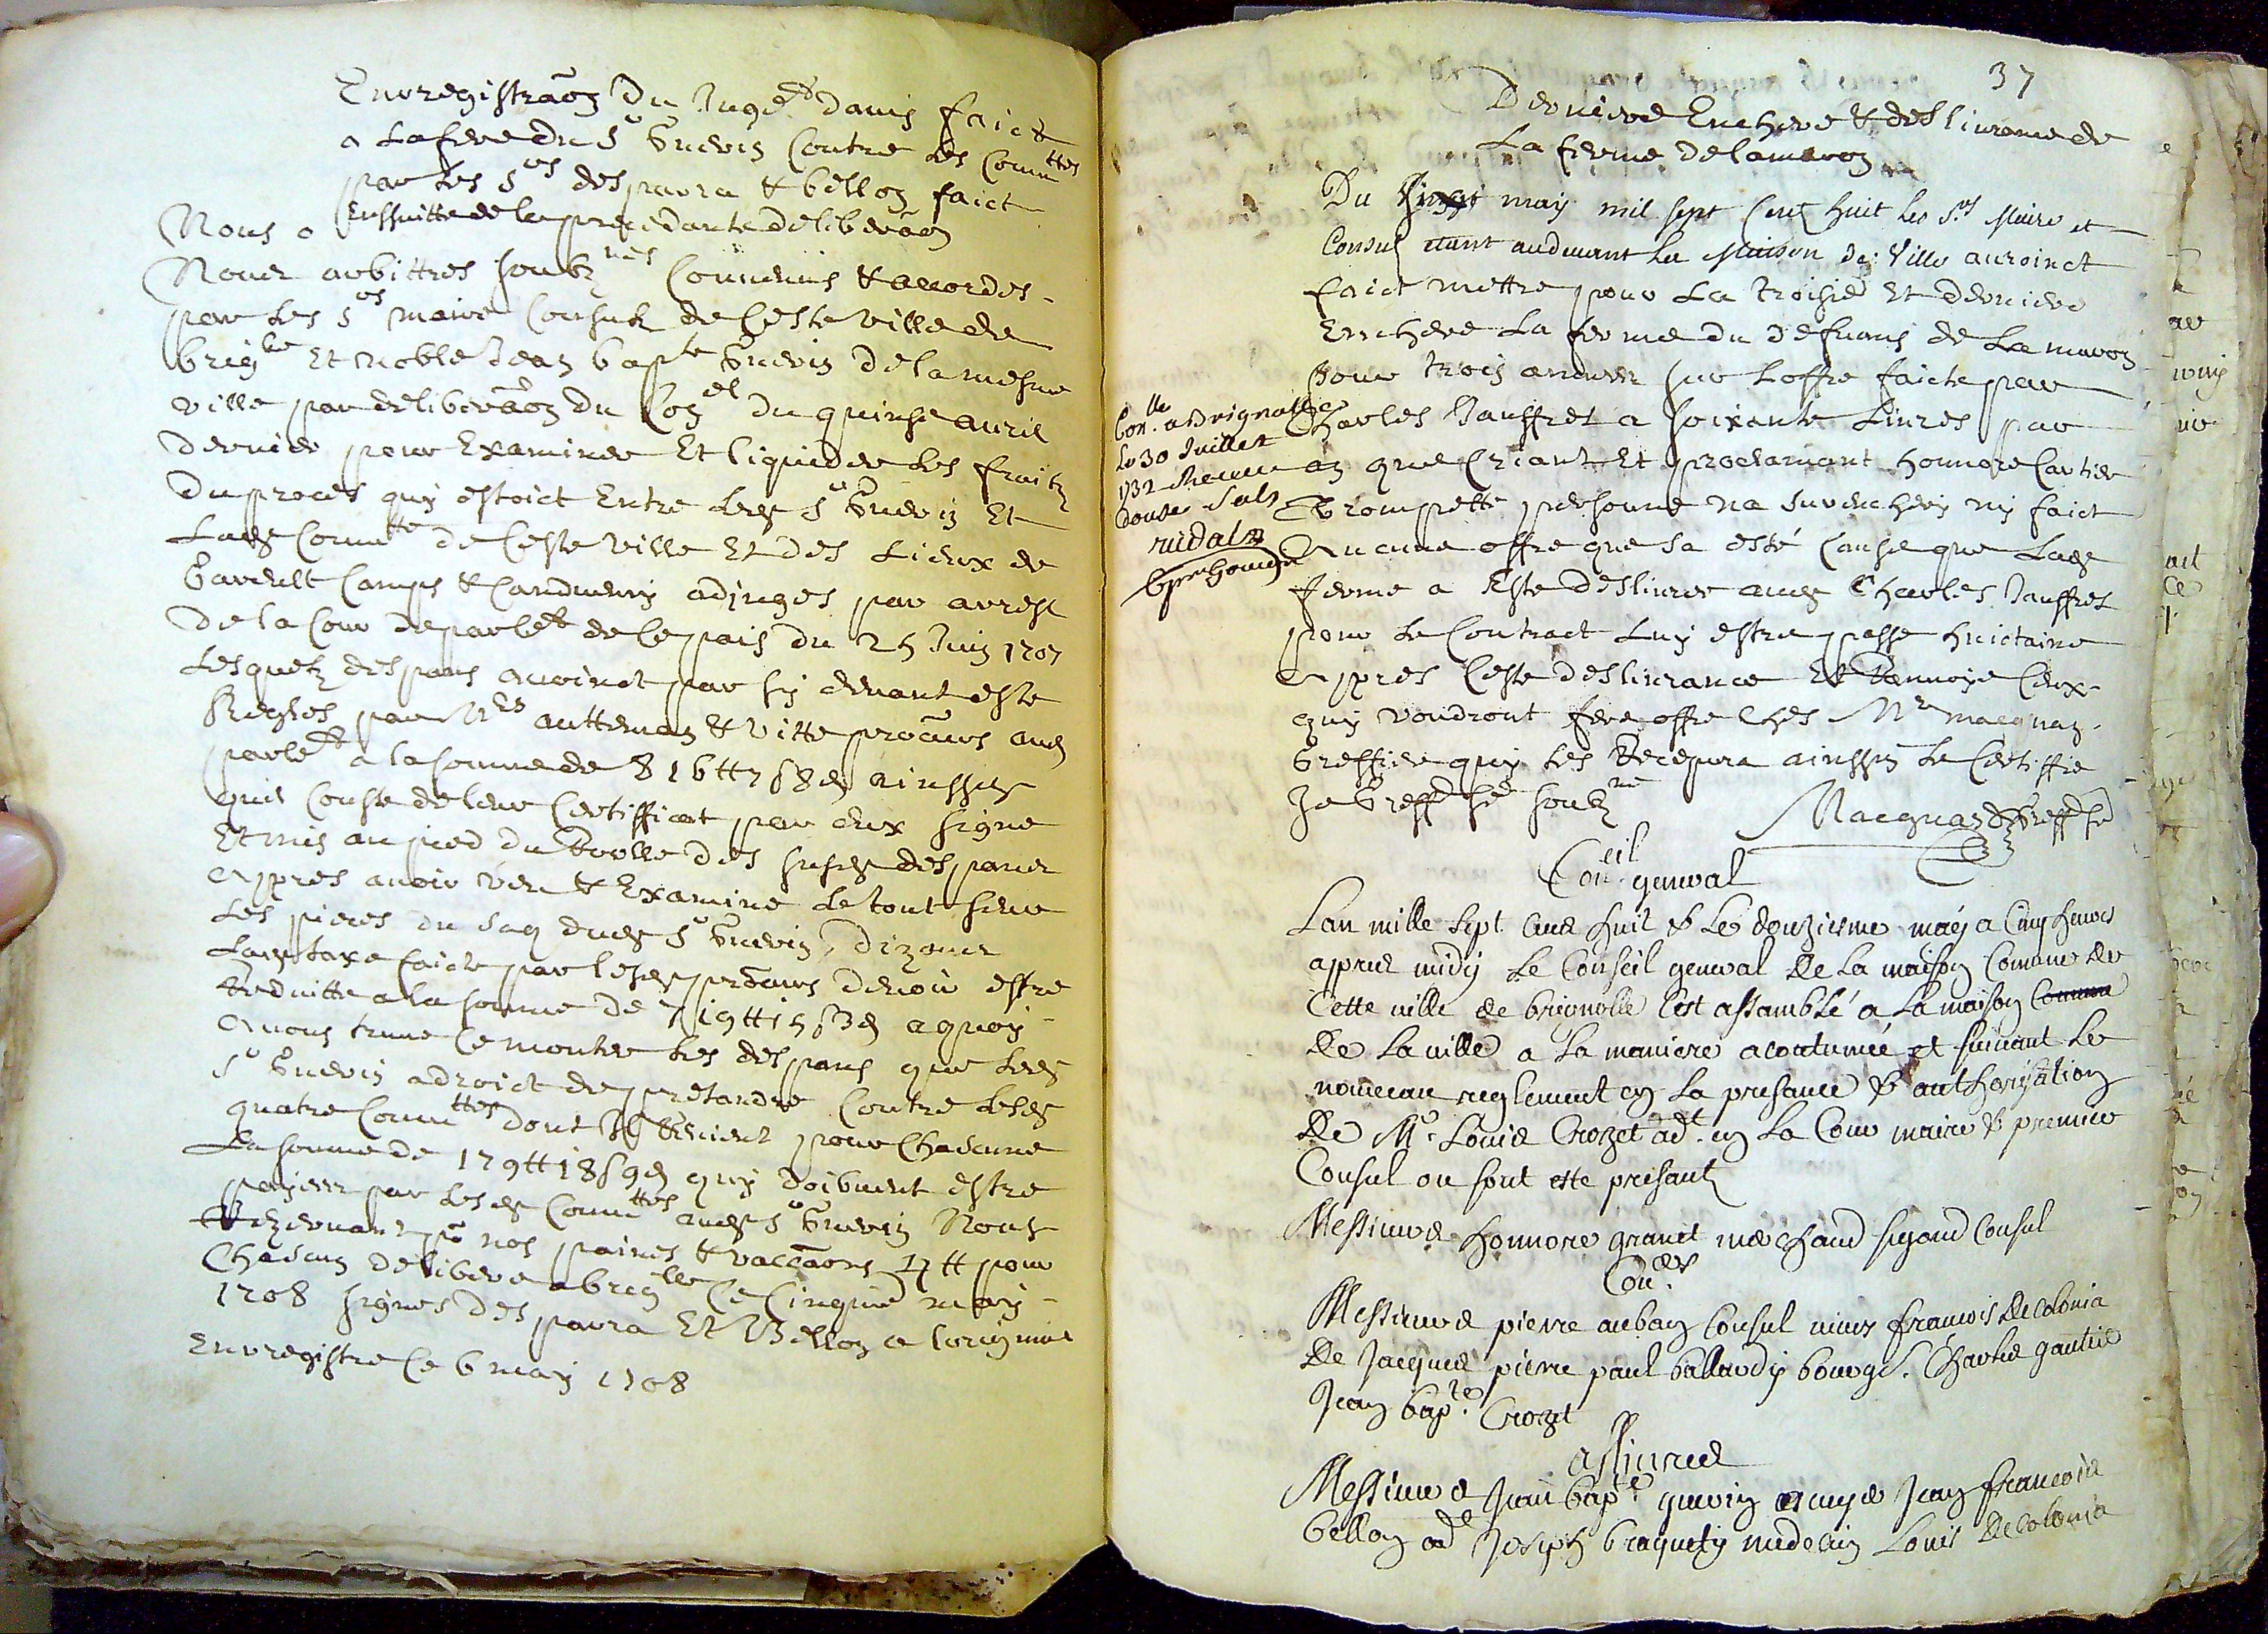 Enregistraōn du Juget davis faict
a Lafere du Sr Guerin Contre Les Commttes
par Les Srs desparra & bellon faict
Enssuitte de la precedante deliberaōn
Nous a
Nous arbittres soubznés Convenus & accordes
par Les Srs maire Consulz de Ceste Ville de
briglle Et noble Jean bapte Guerin de la mesme
ville par deliberaōn du Conel du quinse avril
dernier pour Examiner Et liquider Les fraitz
du proces quy estoict Entre Ledt Sr Guerin Et
Ladt Commtte de Ceste Ville Et des Lieux de
Gareult Camps & Candumy adjuges par arrest
de la Cour de parlet de Ce pais du 25 Juin 1707
Lesquelz despans auroinct par sy devant este
Regles par Mes autteman & Vitte procūrs aud
parlet a la somme de 816 tt 7 s 8 d ainssy
quil Conste de leur Certifficat par eux signe
Et mis au pied du Rolle des susdt despans
Appres avoir veu & Examine Le tout sur
Les pieces du sac dudt Sr Guerin, dizons
Ladt taxe faicte par lesdt procūrs devoir estre
Reduitte a la somme de 719 tt 15 s 3 d a quoy
avons treuve Ce monter Les despans que Ledt
Sr Guerin a droict de pretandre Contre Lesdt
quatre Commttes dont Il Revient pour Chacune
La somme de 179 tt 18 s 9 d quy doibvent estre
payees par Lesdt Commttes audt Sr Guerin Nous
Rezervant pr nos paines & vaccaōns 4 tt pour
Chacun delibere a briglle Ce Cinquie may
1708 signes desparra Et Bellon a loriginal
Enregistre Ce 6 may 1708
37
Derniere Enchere & deslivrance de
La ferme de Lamaron
Du Vingt may mil sept Centz huit les Srs Maire et
Consulz etant audevant La Maison de Ville auroinct
faict mettre pour La troisie Et derniere
Enchere La ferme du defrans de Lamaron
pour trois annees sur Loffre faicte par
Charles Jauffret a soixante Livres par
an que Criant Et proclamant honnore Cartier
Trompette personne na surencheri ny faict
Aucune offre que sa esté Cause que Ladt
ferme a Este deslivree audt Charles Jauffret
pour Le Contract Luy estre passe huictaine
Appres Ceste deslivrance Et Renvoye Ceux
quy voudront fere offre Ches Mr maquan
Greffier quy Les Recepvra ainssyn Le Certiffie
Je Greffr se soubzné
Macquan Greff se
Conlle a Brignolle
Le 30 Juillet
1732 Receu
douse sols
ruidal
Coneil general
Lan mille sept Cens huit & Le douziesme may a Cinq heures
appres midy Le Conseil general De La maison Comune de
Cette ville de brignolle Cest assamblé a La maison Comune
De La ville a La maniere acoutumée et suivant Le
nouveau reglement en La presance & authorisation
De Me Louis Crozet adt en La Cour maire & premier
Consul ou sont este presantz
Messieurs honnore granet marchand segond Consul
Coners
Messieurs pierre auban Consul vieux francois De colonia
De Jacques pierre paul ballardy bourgs. Charles gautier
Jean bapte Crozet
assiures
Messieurs Jean bapte guerin Jean francois
bellon adt Joseph braquety medecin Louis De colonia